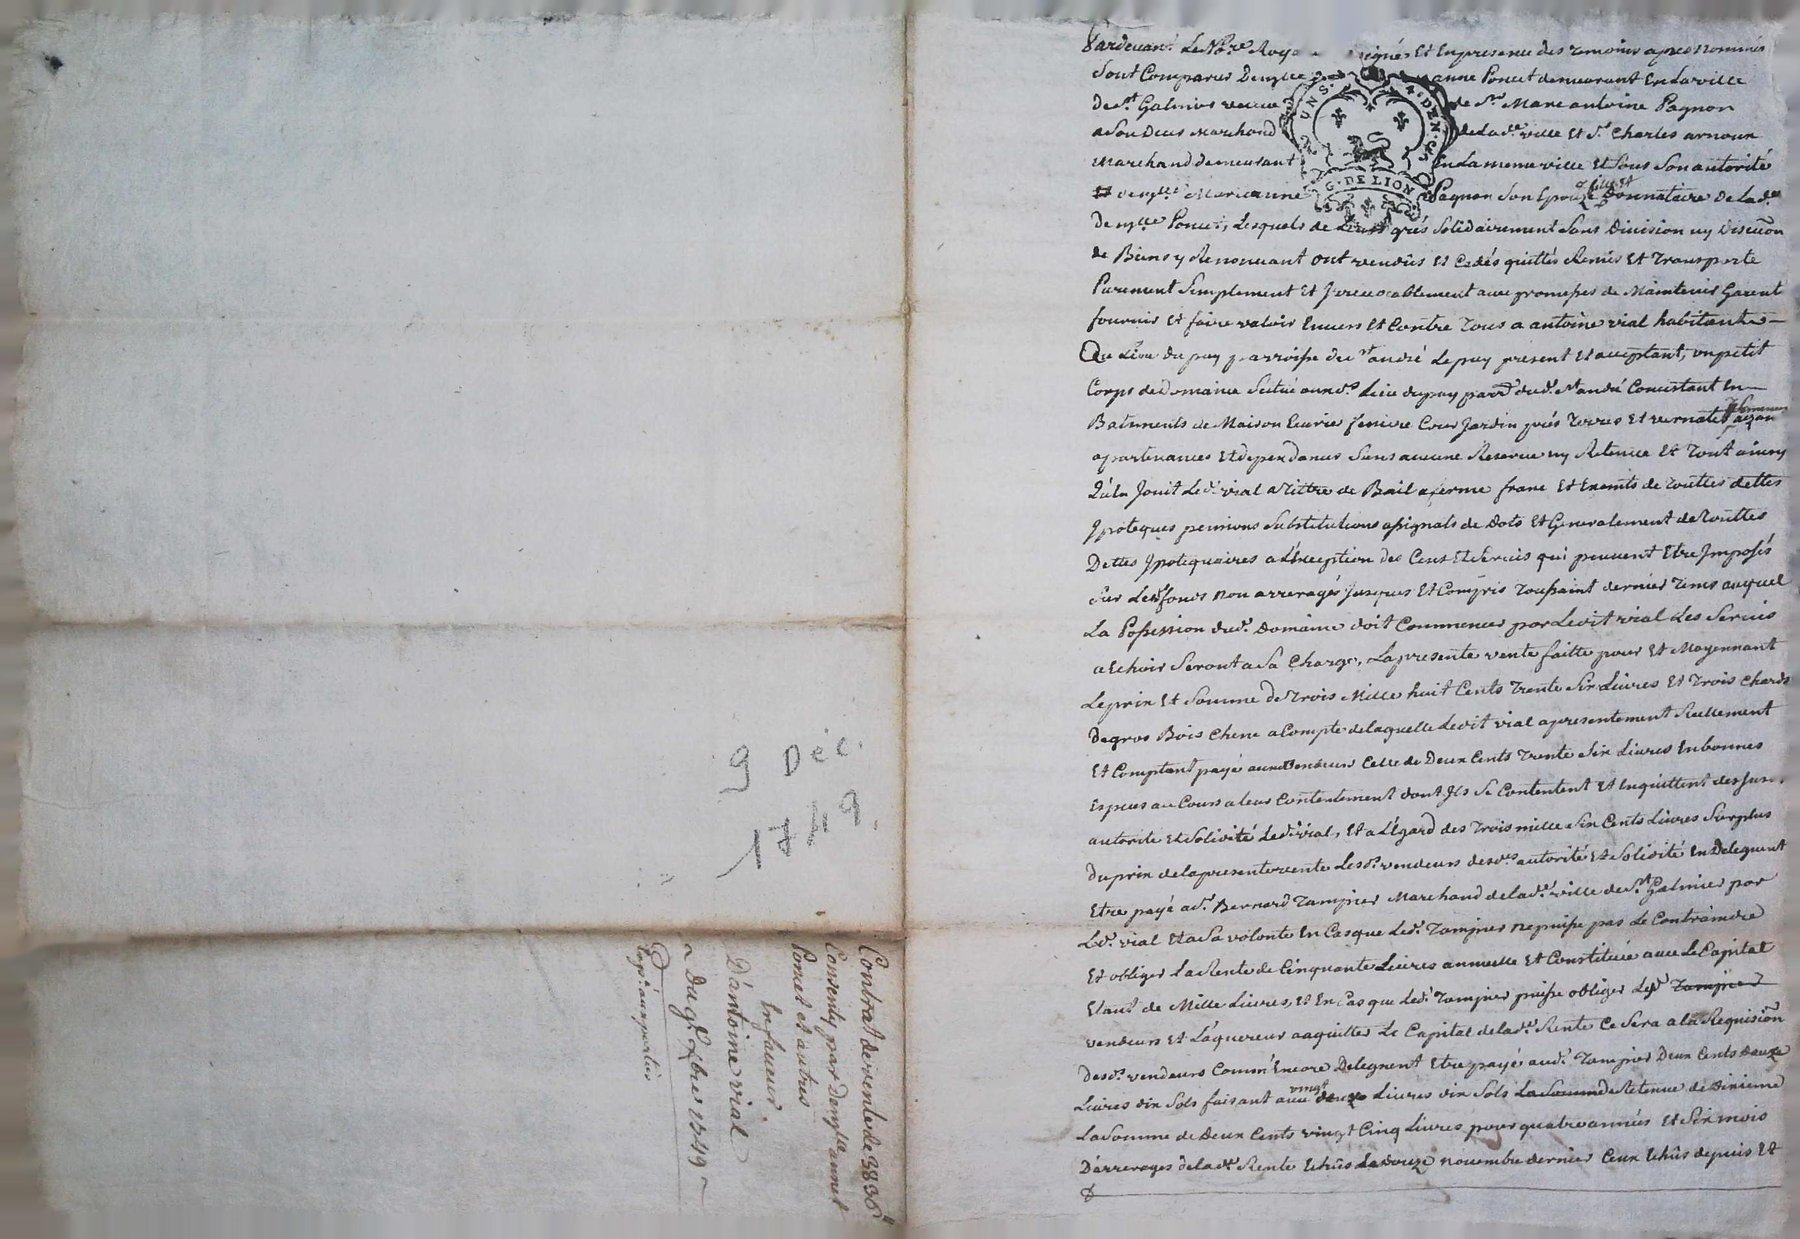 9 Déc.
1749.
Contrat de vente de 3836ᵗᵗ
Consenty par Demlle anne
Poncet et autres
En faveur
D'antoine vial
Du 9e xbre 1749
Pardevant Le Nore Roya signé Et En presence des temoins apres nommés
Sont Comparus Demlle anne Poncet demeurant En La ville
De st Galmier veuve de sr Marc antoine Pagnon
a Son Deces Marchand de lade ville Et sr Charles arnoux
Marchand demeurant En La meme ville Et Sous Son autorité
demlle Marianne Pagnon Son Epouze fille et Donnataire De Lade
demlle Poncet, Lesquels de Leurs grés Solidairement Sans Division ny Discution
de Biens y Renonçant ont vendûs Et Cedés quittés Remis Et Transporté
Purement Simplement Et Jrrevocablement avec promesses de Maintenir Garentir
fournir Et faire valoir Envers Et Contre Tous a antoine vial habitant
Du Lieu du puy parroisse de st andré Le puy present Et acceptant, un petit
Corps de Domaine Scitué aud. Lieu du puy parr. dud. st andré Concistant En
Batiments de Maison Ecurie feniere Cour Jardin prés Terres Et vernates
apartenances Et dependances Sans aucune Reserve ny Retenue Et Tout ainsy
Qu'En Jouit Led. vial a Tittre de Bail a ferme franc Et Exemts de Touttes dettes
Jpoteques pensions Substitutions assignats de Dots Et Generalement de Touttes
Dettes Jpotequaires a L'Exception des Cens Et Servis qui peuvent Etre Jmposés
Sur Lesd. fonds non arreragés Jusques Et Compris Toussaint dernier Tems auquel
La Possession dud. Domaine doit Commencer par Ledit vial Les Servis
a Echoir Seront a Sa Charge, La presente vente faitte pour Et Moyennant
Le prix Et Somme de Trois Mille huit Cents Trente Six Livres Et Trois Chards
De gros Bois Chene a Compte de laquelle Ledit vial a presentement Reellement
Et Comptant payé auxd. vendeurs Celle de Deux Cents Trente Six Livres En bonnes
Especes au Cours a leur Contentement dont Jls Se Contentent Et En quittent
autorité Et Solidité Led. vial, Et a L'Egard des Trois mille Six Cents Livres Surplus
Du prix de la presente vente Lesd. vendeurs desd. autorité Et Solidité En Deleguent
Etre payé a sr Bernard Tampier Marchand de lade ville de st Galmier par
Led. vial Et a Sa volonté En Cas que Led. Tampier ne puisse pas Le Contraindre
Et obliger La Rente de Cinquante Livres annuelle Et Constituée avec Le Capital
Etant de Mille Livres, Et En Cas que Led. Tampier puisse obliger Lesd. Tampier
vendeurs Et L'aquereur a aquitter Le Capital de lade Rente Ce Sera a la Requisition
Desd. vendeurs Comm' Encore Deleguent Etre payé aud. Tampier Deux Cents Douze
Livres dix Sols faisant avec vingt deux Livres dix Sols La Somme de Retenue de Dixieme
La Somme de Deux Cents vingt Cinq Livres pour quatre années Et Six mois
D'arrerages de lade Rente Echûs Le douze novembre dernier Ceux Echûs depuis Et